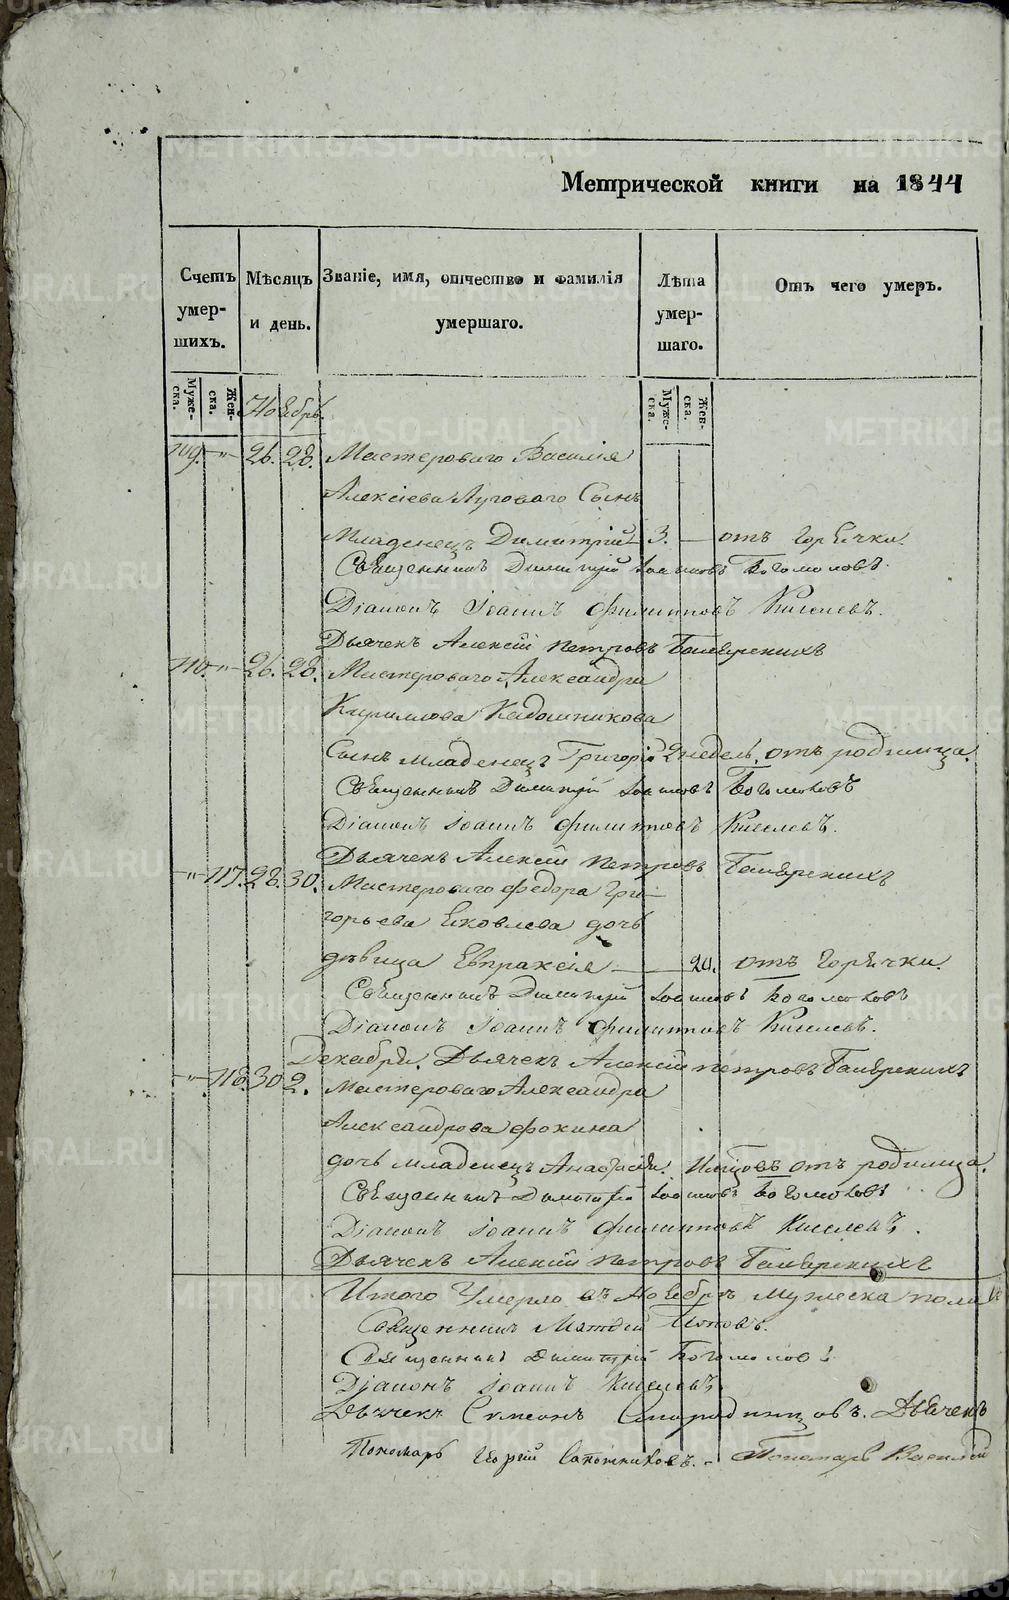 Метрической книги на 1844
Счетъ умер-шихъ.
Мѣсяцъ и день.
Званіе, имя, отчество и фамилія умершаго.
Лѣта умер-шаго.
Отъ чего умеръ.
Муже-ска. Жен-ска.
Ноябрь.
Муже-ска. Жен-ска.
109. -"- 26. 28. Мастероваго Василія
Алексѣева Луговаго Сынъ
Младенецъ Димитрій 3. — отъ горячки.
Священникъ Димитрій Іоанновъ Богомоловъ.
Діаконъ Іоаннъ Филипповъ Киселевъ.
Дьячекъ Алексій Петровъ
110. -"- 26. 28. Мастероваго Александра
Кирилова Кадошникова
Сынъ младенецъ Григорій 2 недель, отъ родимца.
Священникъ Димитрій Богомоловъ
Діаконъ Іоаннъ Филипповъ Киселевъ.
Дьячекъ Алексій Петровъ
-"- 117. 28. 30. Мастероваго Федора Гри-
горьева Яковлева дочь
дѣвица Евпраксія — 20. отъ горячки.
Священникъ Димитрій Богомоловъ
Діаконъ Іоаннъ Филипповъ Киселевъ.
Декабря. Дьячекъ Алексій Петровъ
-"- 118. 30 2. Мастероваго Александра
Александрова Фокина
дочь младенецъ Анастасія. отъ родимца.
Священникъ Димитрій Богомоловъ
Діаконъ Іоаннъ Филипповъ Киселевъ.
Дьячекъ Алексій Петровъ
Итого Умерло въ Ноябрѣ мужеска пола
Священникъ Матвей Поповъ.
Священникъ Димитрій Богомоловъ
Діаконъ Іоаннъ Киселевъ
Дьячекъ Симеонъ Дьячекъ
Пономарь Георгій Сапожниковъ. Пономарь Василій
METRIKI.GASO-URAL.RU